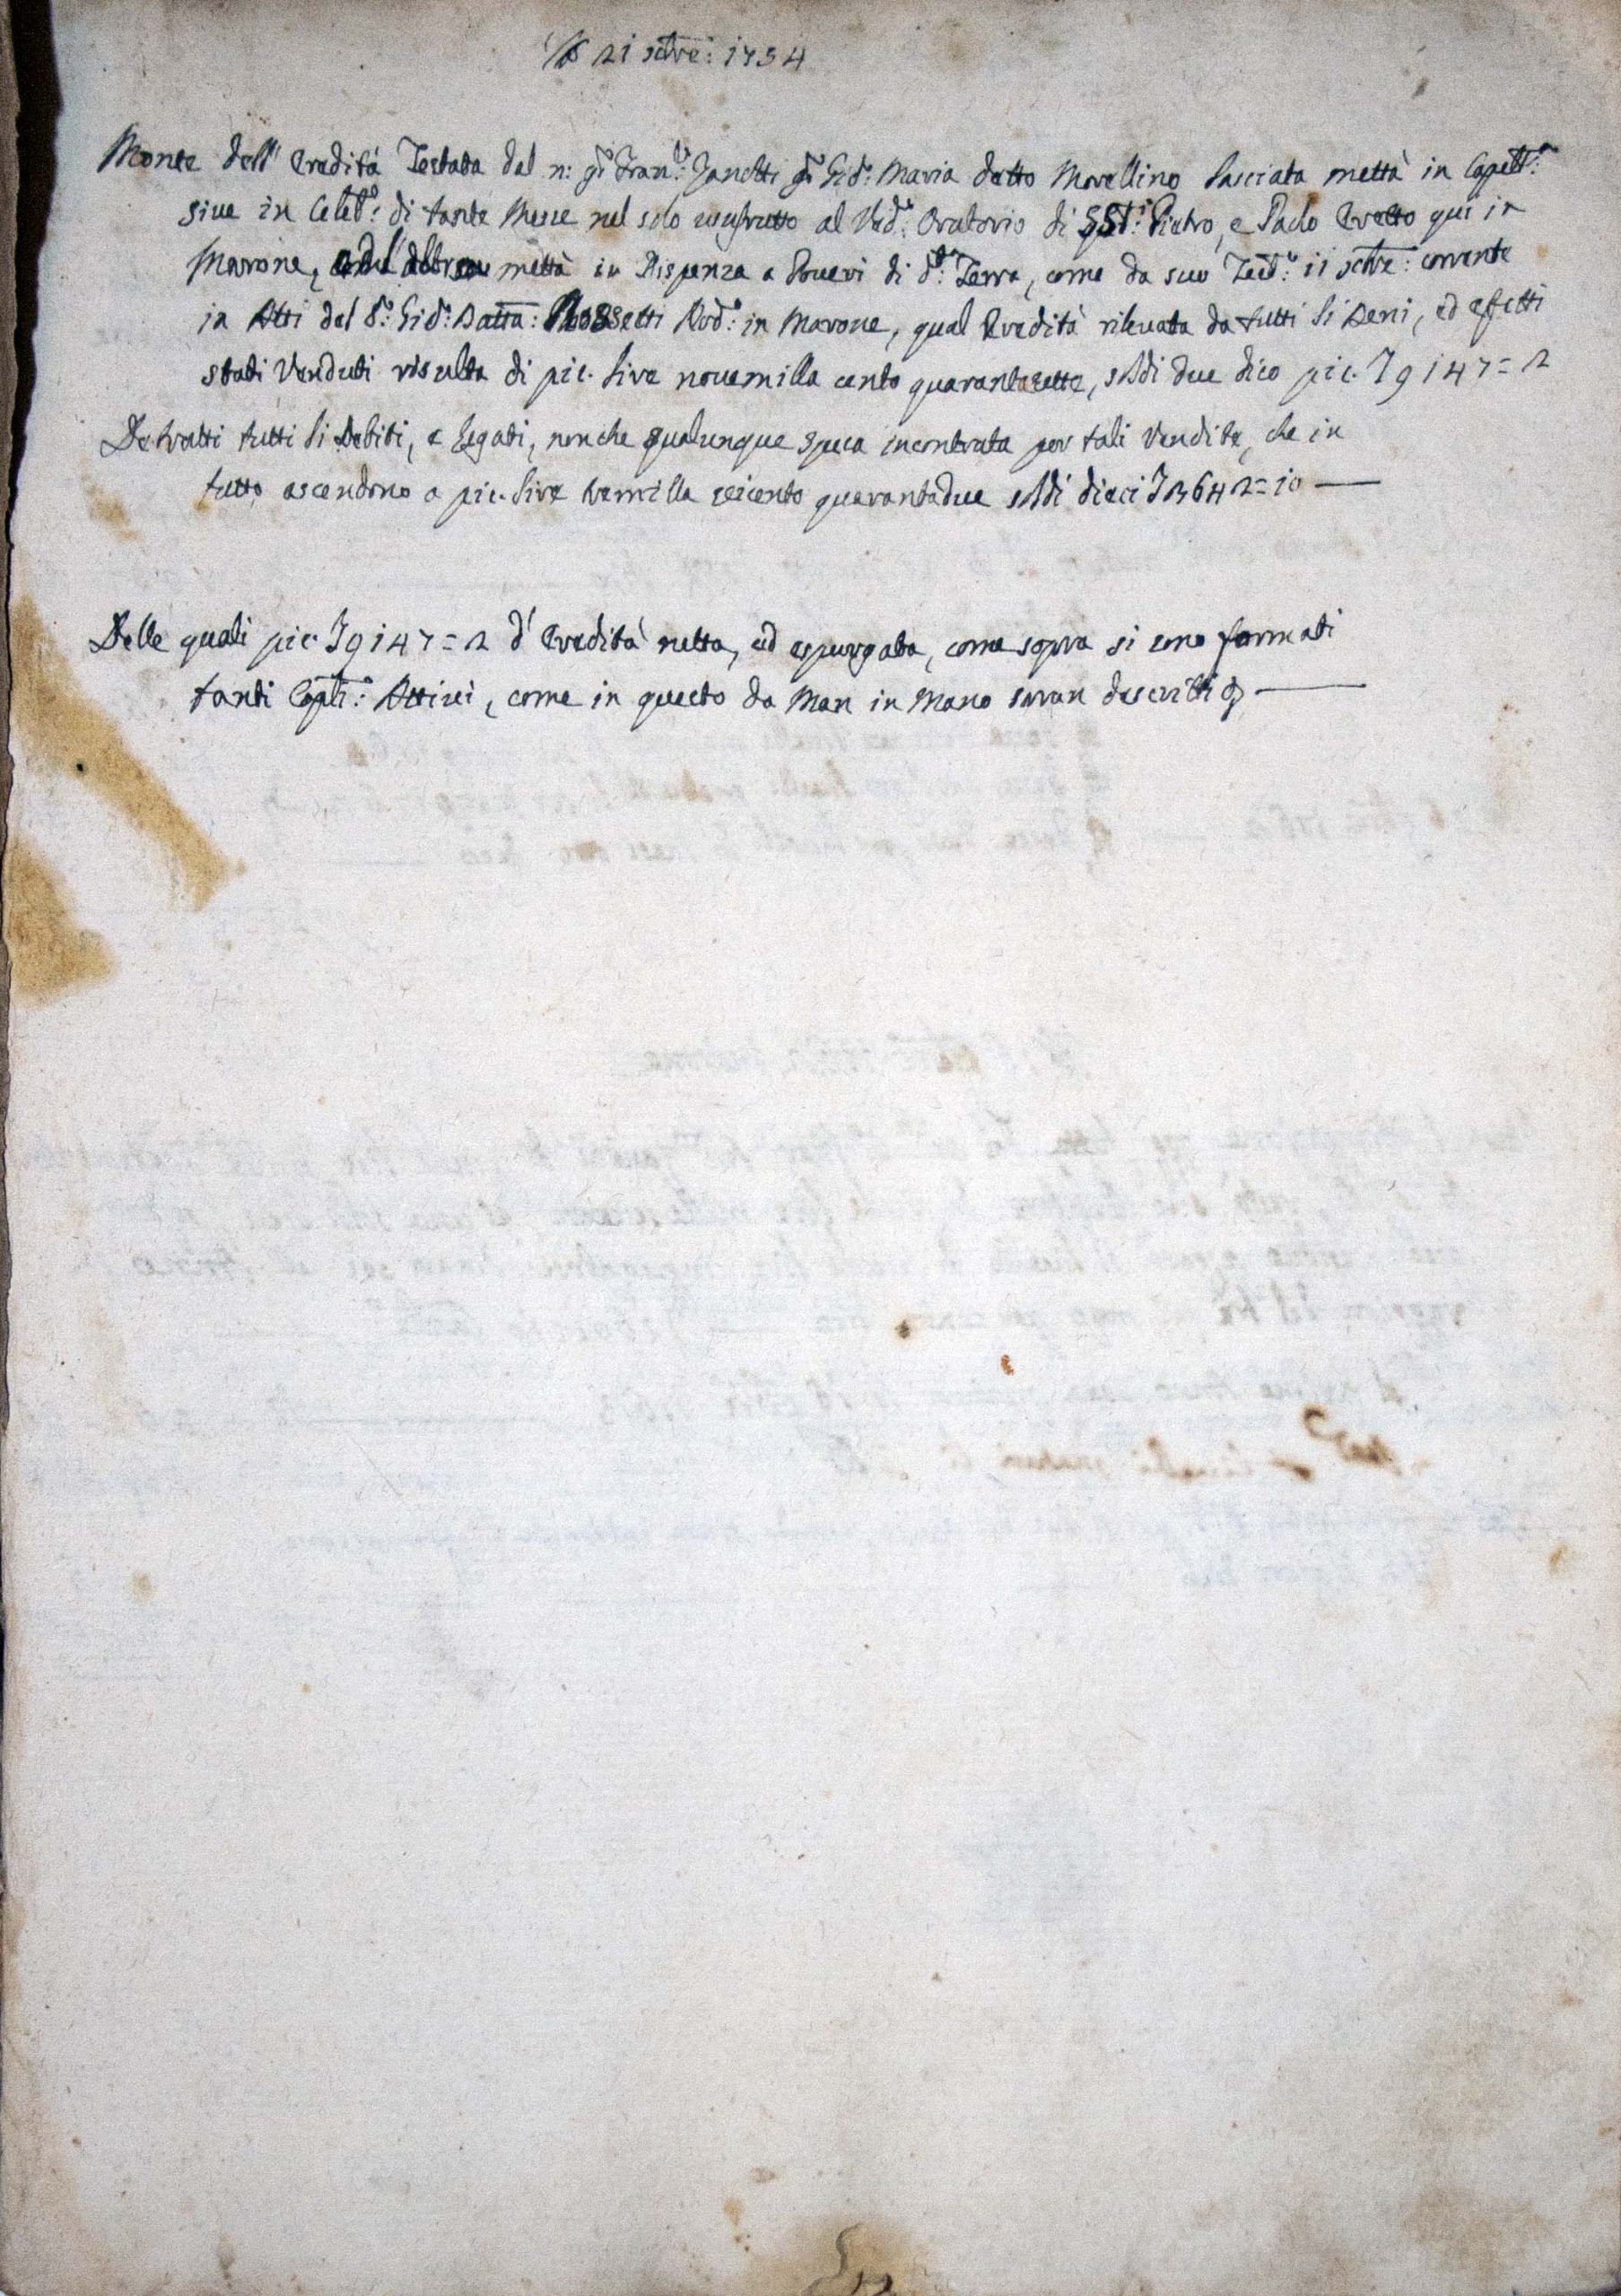 21 settre: 1754
Monte dell' Eredità Testata dal n: qm Franco: Zanotti qm Gio: Maria detto Morellino lasciata mettà in Capelle:
sive in Celebo: di tante Messe nel solo usufrutto al Vedo: Oratorio di SSti: Pietro, e Paolo Eretto qui in
Marone, mettà in Dispenza a Poveri di da: Terra, come da suo Testo: 11 settre: corrente
in Atti del do: Gio: Batta: Rossetti Nodo: in Marone, qual Eredità rilevata da tutti li Beni, ed effetti
stati Venduti risulta di pic. lire novemilla cento quarantasette, soldi due dico pic. L 9147=2
Detratti tutti li Debiti, e legati, nonche qualunque spesa incontrata per tali Vendite, che in
tutto ascendono a pic. lire tremilla seicento quarantadue soldi dieci L 3642=10
Delle quali pic. L 9147=2 d' Eredità netta, ed espurgata, come sopra si sono formati
tanti Capli: Attivi, come in questo da Man in Mano saran descritti